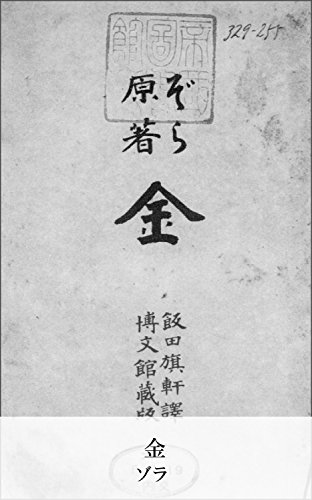 329-255
ぞら
原著
金
飯田旗軒譯
博文館藏版
金
ゾラ